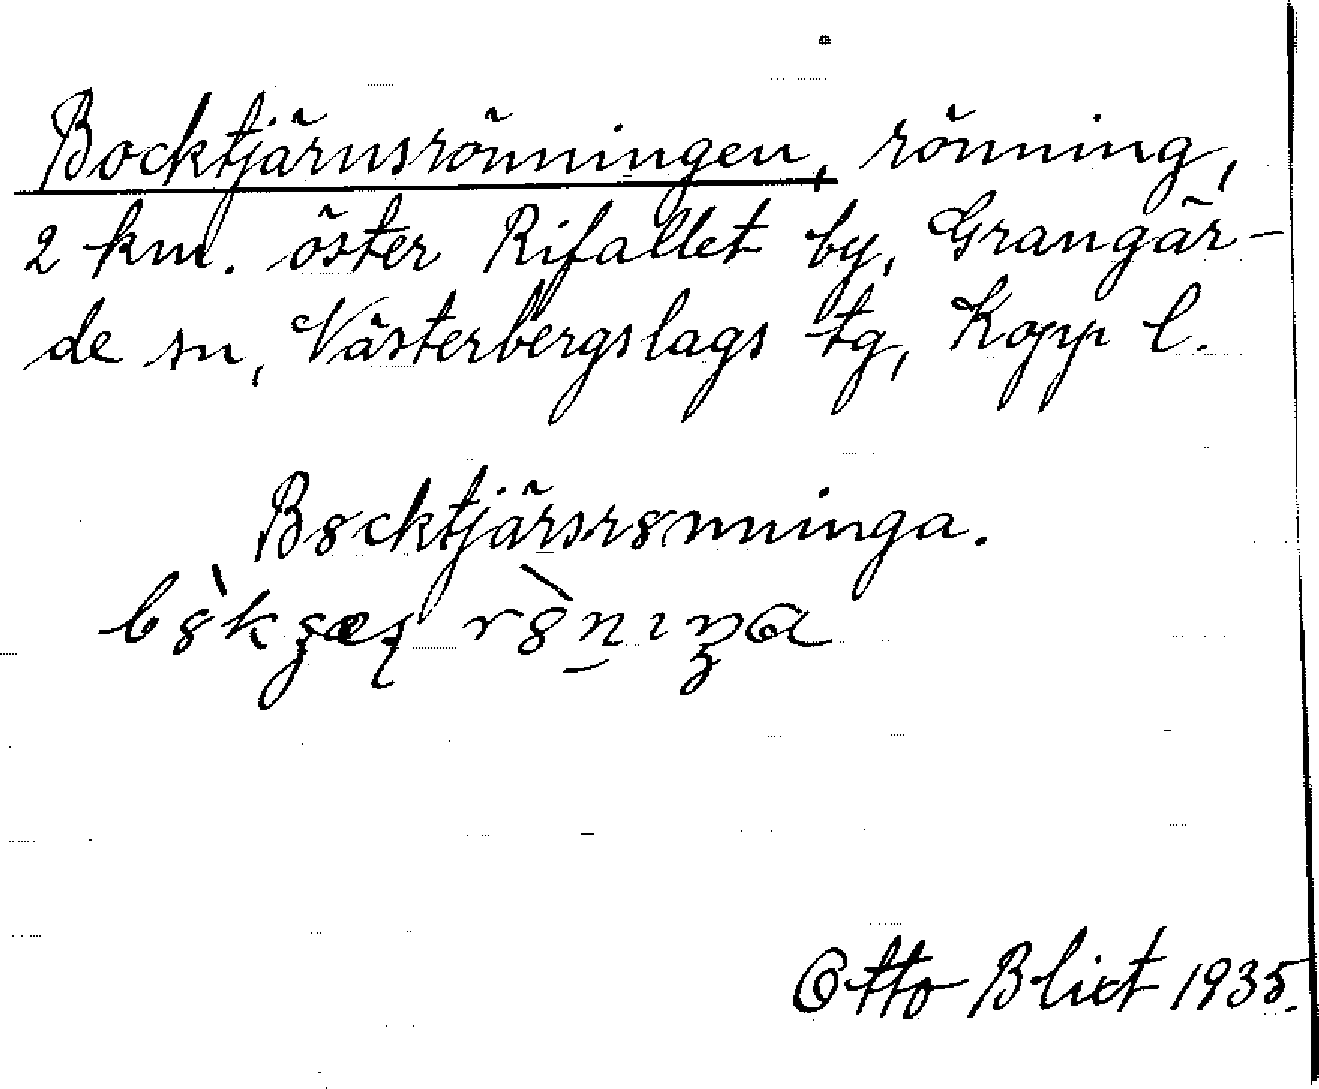 Bocktjärnsrönningen, rönning,
2 km. öster Rifallet by, Grangär-
de sn, Västerbergslags tg, Kopp l.
B8cktjärsr8nninga.
Otto Blixt 1935.